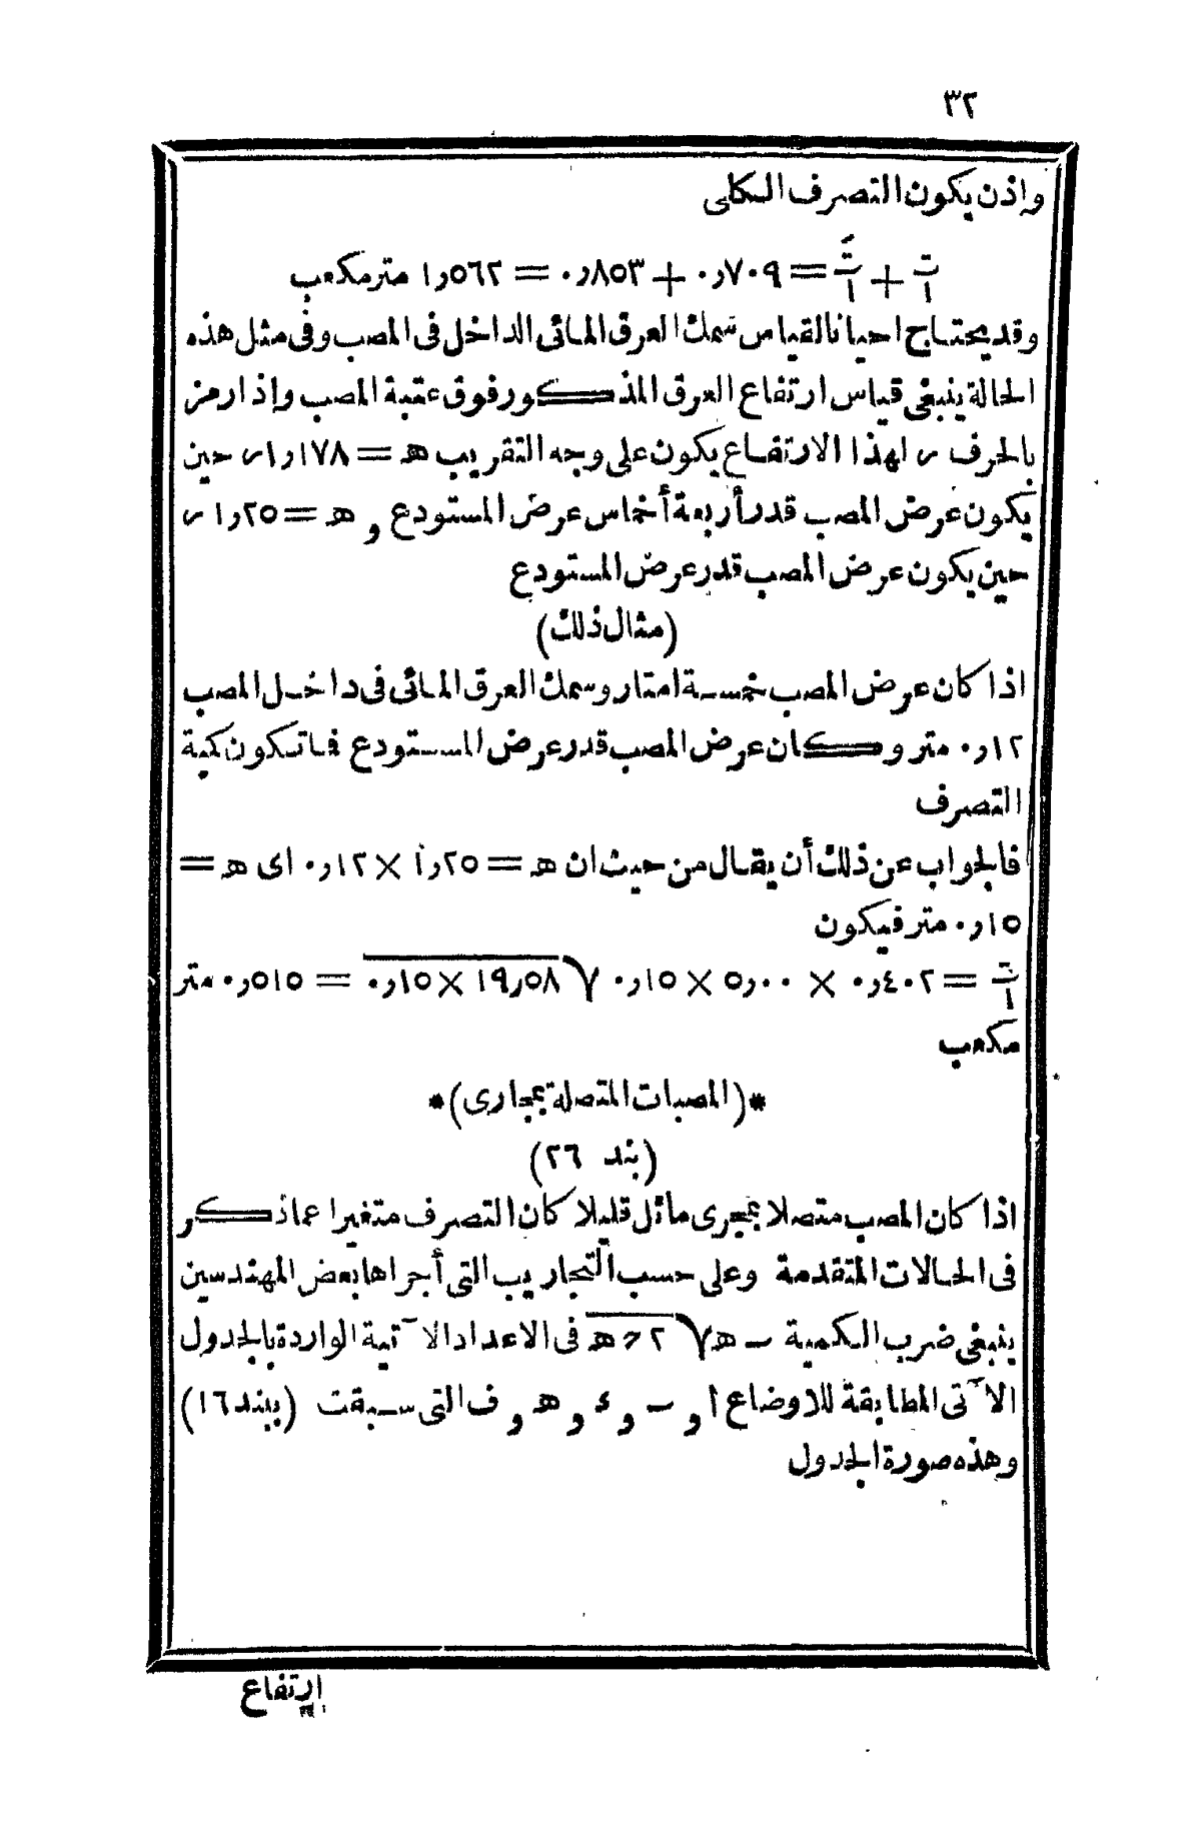 ٣٢
واذن يكون التصرف الكلى
ت/١ + تَ/١ = ٠٫٧٠٩ + ٠٫٨٥٣ = ١٫٥٦٢ متر مكعب
وقد يحتاج احيانا لقياس سمك العرق المائى الداخل فى المصب وفى مثل هذه
الحالة ينبغى قياس ارتفاع العرق المذكور فوق عتبة المصب واذا رمز
بالحرف ر لهذا الارتفاع يكون على وجه التقريب هـ = ١٫١٧٨ ر حين
يكون عرض المصب قدر أربعة أخماس عرض المستودع و هـ = ١٫٢٥ ر
حين يكون عرض المصب قدر عرض المستودع
(مثال ذلك)
اذا كان عرض المصب خمسة امتار وسمك العرق المائى فى داخل المصب
٠٫١٢ متر وكان عرض المصب قدر عرض المستودع فما تكون كمية
التصرف
فالجواب عن ذلك أن يقال من حيث ان هـ = ١٫٢٥ × ٠٫١٢ اى هـ =
٠٫١٥ متر فيكون
ت/١ = ٠٫٤٠٢ × ٥٫٠٠ × ٠٫١٥ √ ١٩٫٠٨ × ٠٫١٥ = ٠٫٥١٥ متر
مكعب
*(المصبات المتصلة بمجارى)*
(بند ٢٦)
اذا كان المصب متصلا بمجرى مائل قليلا كان التصرف متغيرا عما ذكر
فى الحالات المتقدمة وعلى حسب التجاريب التى أجراها بعض المهندسين
ينبغى ضرب الكمية ب هـ √ ٢ ح هـ فى الاعداد الآتية الواردة بالجدول
الآتى المطابقة للاوضاع ا و ب و ء و هـ و ف التى سبقت (ببند ١٦)
وهذه صورة الجدول
ارتفاع